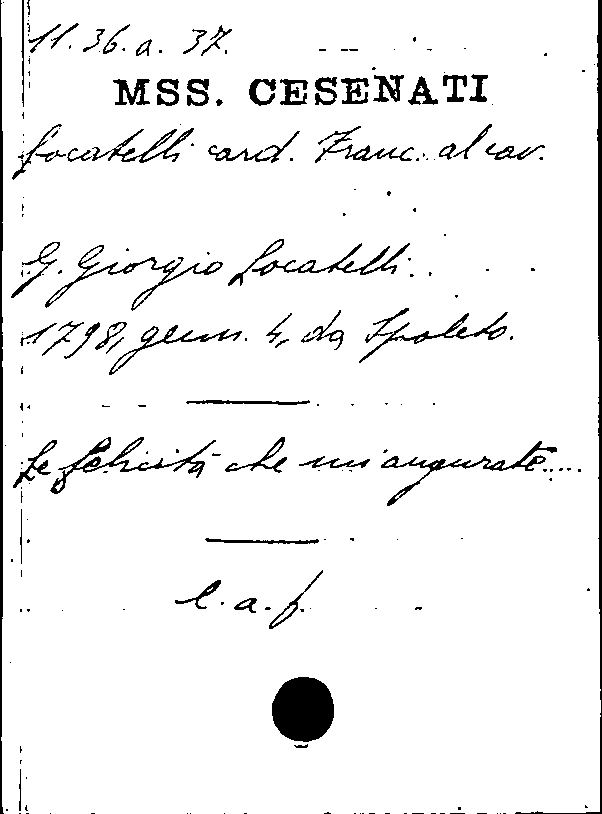 11. 36. a. 37.
MSS. CESENATI
Locatelli card. Franc. al cav.
G. Giorgio Locatelli.
1798, genn. 4, da Spoleto.
Le felicità che mi augurate....
l. a. f.